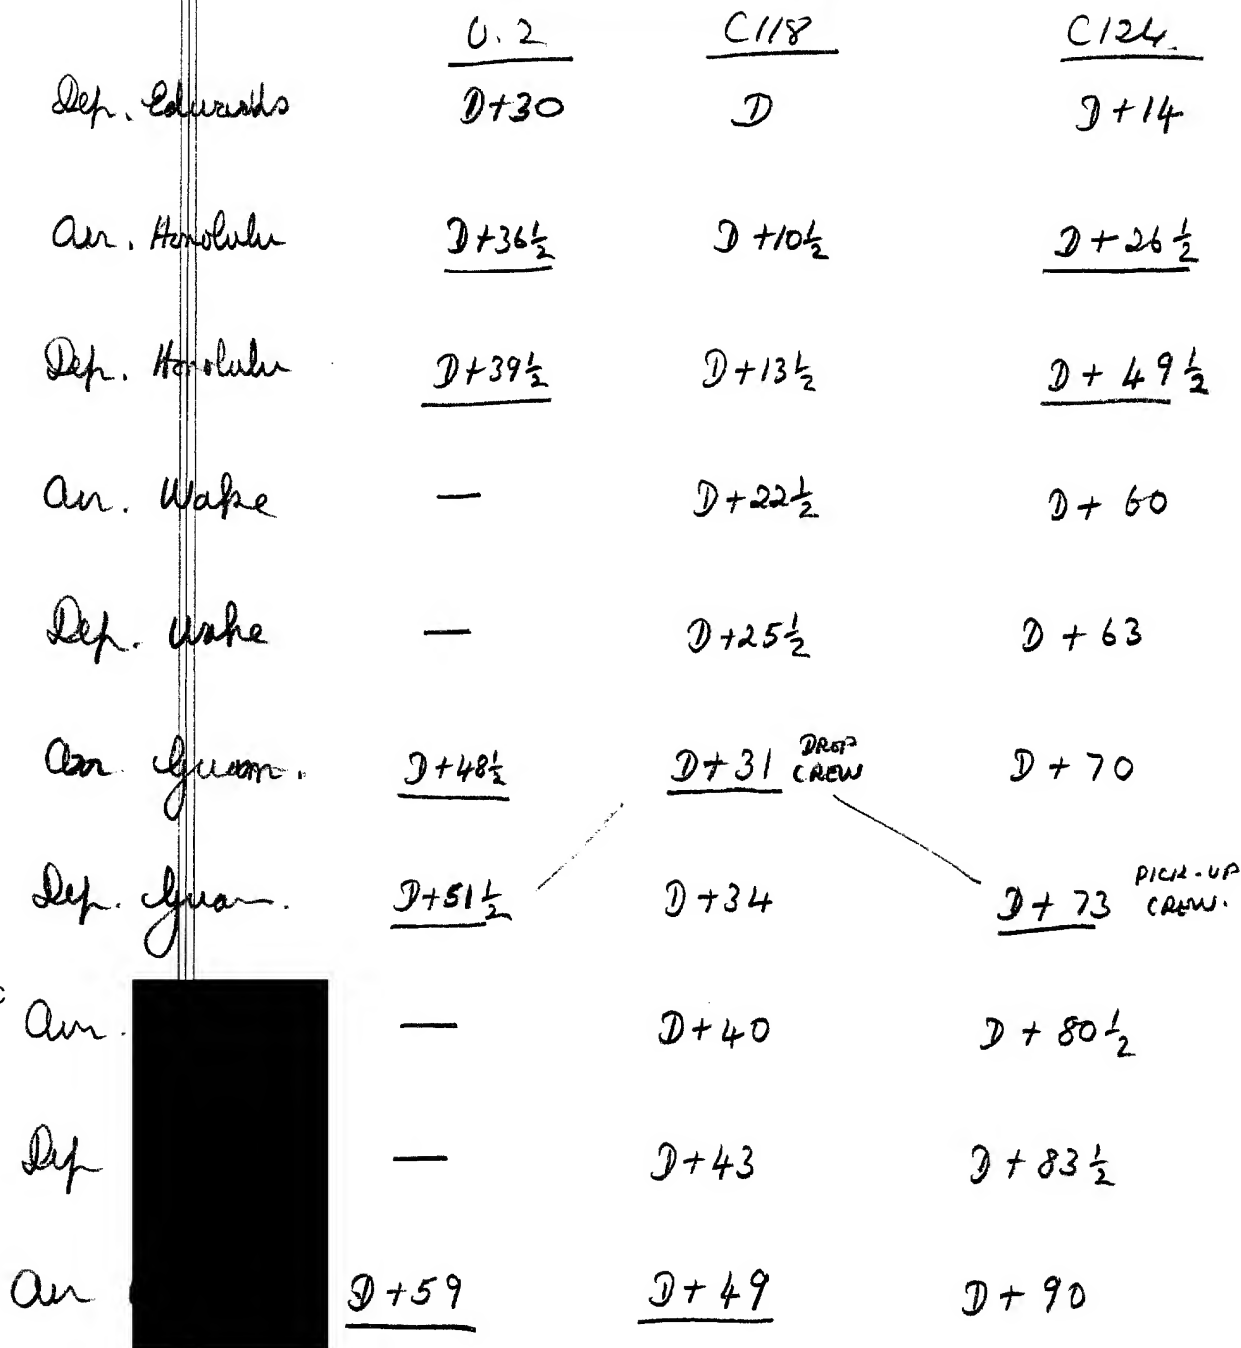 U.2 C118 C124.
Dep. Edwards D+30 D D+14
Arr. Honolulu D+36½ D+10½ D+26½
Dep. Honolulu D+39½ D+13½ D+49½
Arr. Wake — D+22½ D+60
Dep. Wake — D+25½ D+63
Arr. Guam. D+48½ D+31 DROP CREW D+70
Dep. Guam. D+51½ D+34 D+73 PICK-UP CREW.
Arr. — D+40 D+80½
Dep — D+43 D+83½
Arr D+59 D+49 D+90